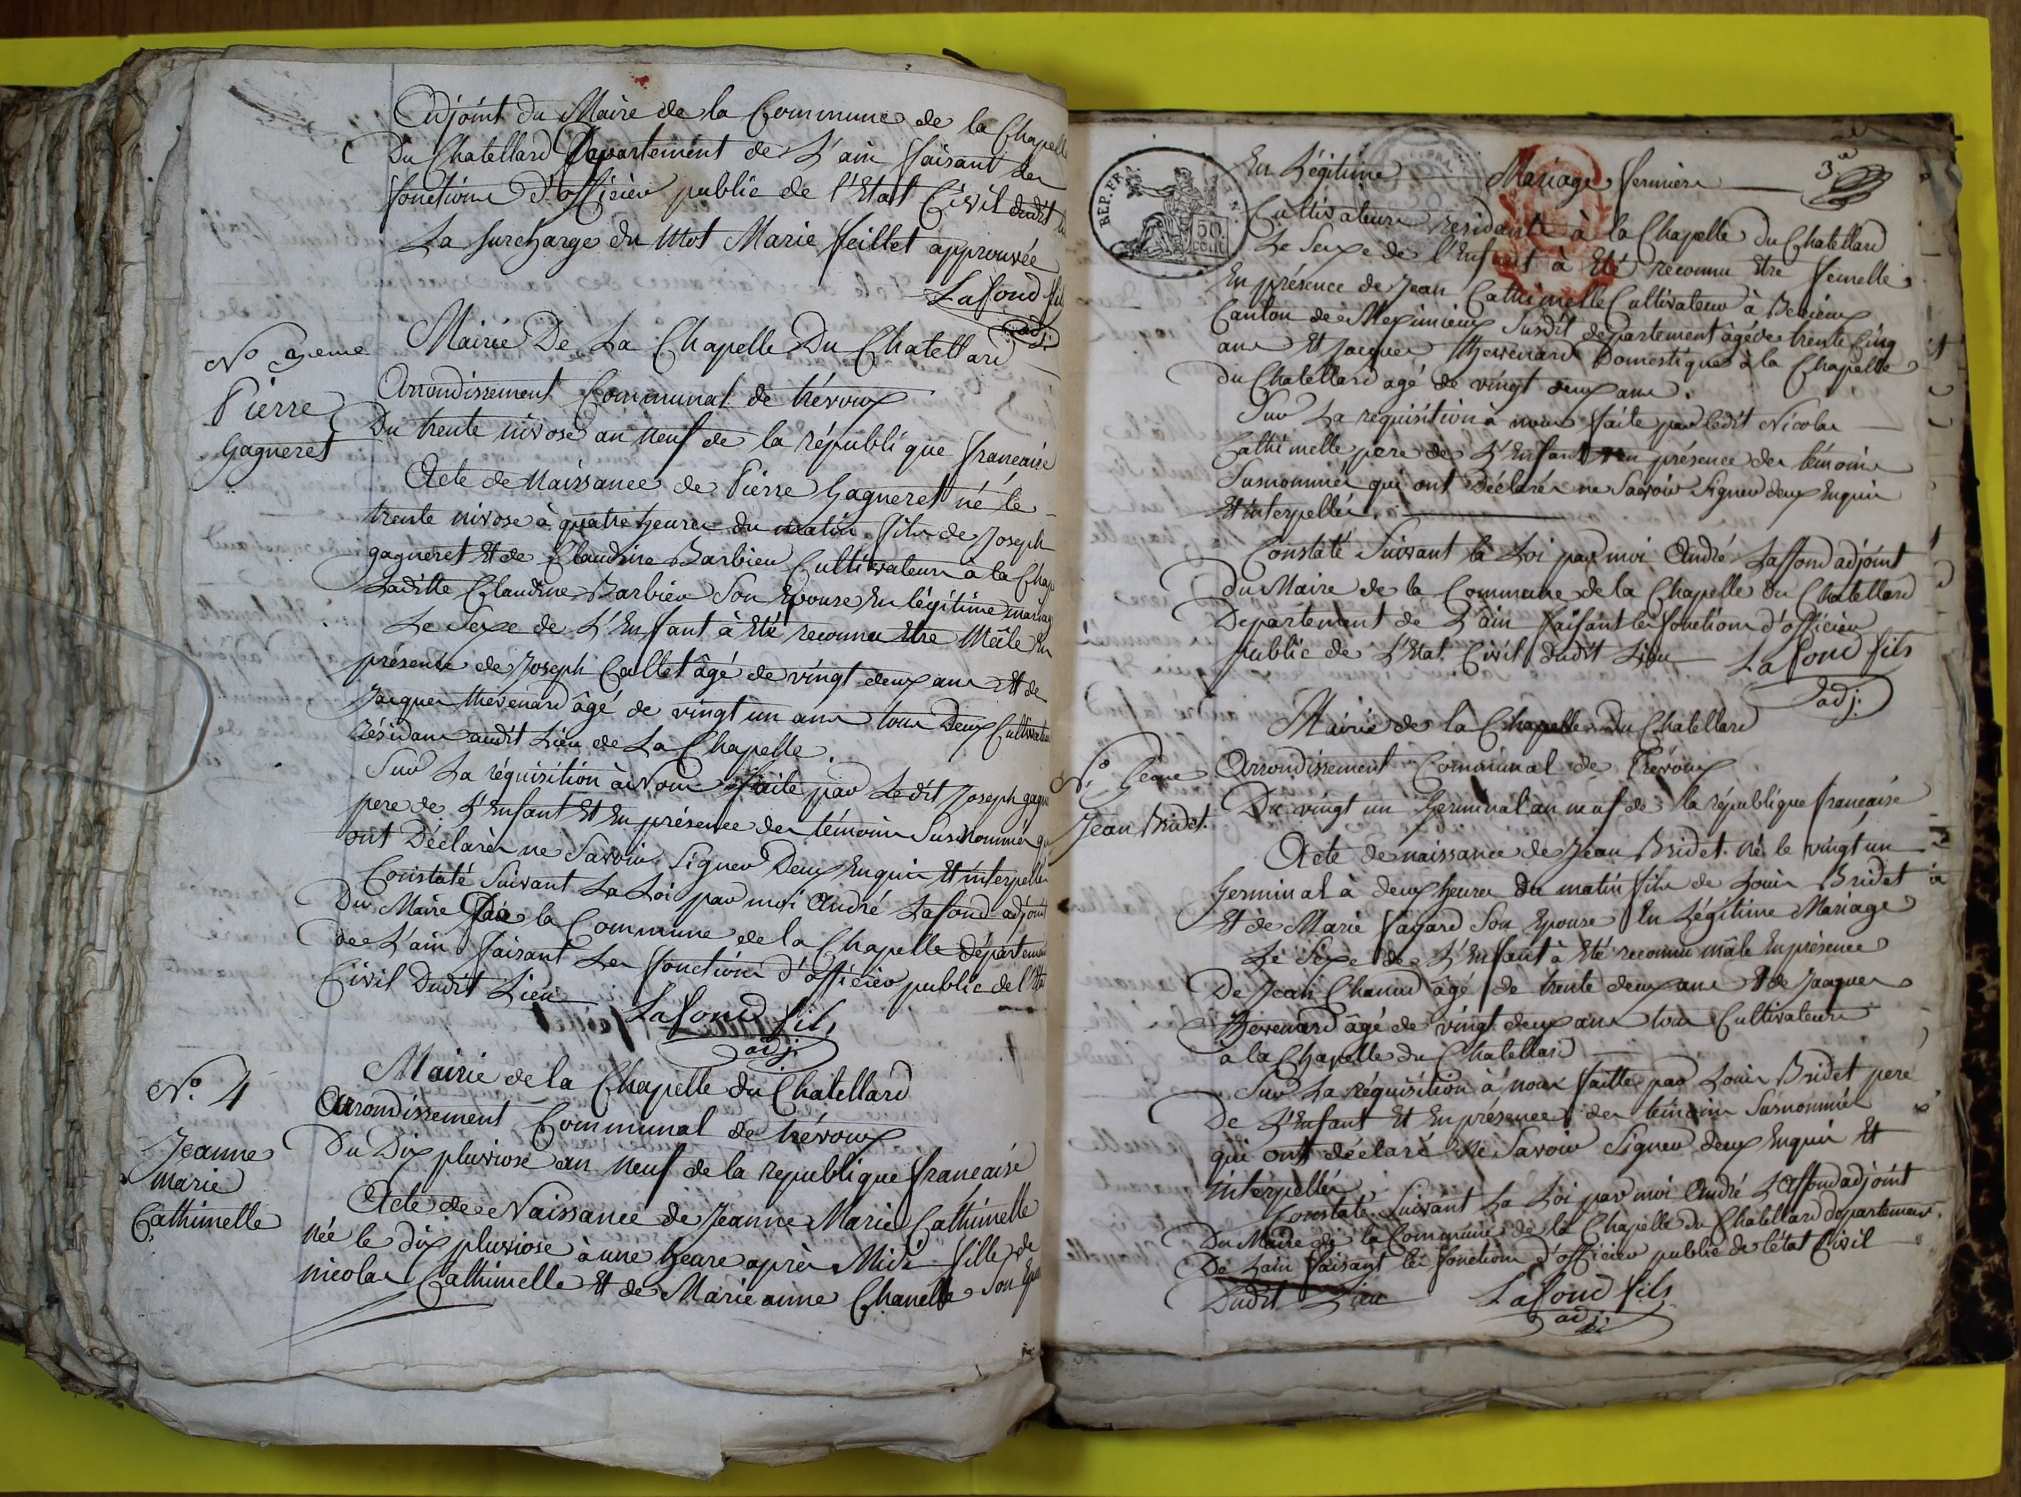 Adjoint du Maire de la Commune de la Chapelle
Du Chatellard Departement de L'ain faisant les
fonctions d'officier public de l'Etat Civil dudit
La surcharge du Mot Marie feillet approuvée
Lafond fils
adj.
Mairie De La Chapelle Du Chatellard
Arrondissement Communal de trévoux
Du trente nivose an neuf de la républi que francaise
Pierre
gagneret
Acte de Naissance de Pierre Gagneret né le
trente nivose à quatre heures du matin fils de Joseph
gagneret Et de Claudine Barbier Cultivateurs à la Chap
Laditte Claudine Barbier Son Epouse En légitime mariag
Le Sexe de L'Enfant à Eté reconnu Etre Mâle En
présence de Joseph Collet âgé de vingt deux ans Et de
Jacques thévenard âgé de vingt un ans tous Deux Cultivate
Résidans audit Lieu de La Chapelle.
Sur La réquisition à Nous faite par Ledit Joseph gagn
pere de L'Enfant Et En présence des témoins Susnommés q
ont Déclarés ne Savoir Signer Deux Enquis Et interpellé
Constaté Suivant La Loi par moi André Lafond adjoint
Du Maire De la Commune de la Chapelle départeme
de L'ain faisant Les fonctions d'officier public de l'Eta
Civil Dudit Lieu
Lafond fils
adj.
N.º 4
Mairie de la Chapelle du Chatellard
Arrondissement Communal de trévoux
Du Dix pluviose an neuf de la republique francaise
Jeanne
marie
Cathimelle
Acte de Naissance de Jeanne Marie Cathimelle
née le dix pluviose à une heure après Midi fille de
nicolas Cathimelle Et de Marie anne Chanelle Son Epou
REP. FR.
50
cent.
En Légitime Mariage
3
Cultivateurs residants à la Chapelle Du Chatellard
Le Sexe de l'Enfant à Eté reconnu Etre femelle
En présence de Jean Cathimelle Cultivateur à
Canton de Meximieux Susdit departement âgé de trente Cinq
ans Et Jacques thevenard Domestique à la Chapelle
Du Chatellard agé de vingt deux ans.
Sur La requisition à nous faite par ledit Nicolas
Cathimelle pere de L'Enfant en présence des témoins
Susnommés qui ont Déclarés ne Savoir Signer deux Enquis
Et interpellés.
Constaté Suivant la Loi par moi André Laffond adjoint
Du Maire de la Commune de la Chapelle du Chatellard
Departement de L'ain faisant les fonctions d'officier
public de L'Etat Civil dudit Lieu
Lafond fils
adj.
Mairie de la Chapelle Du Chatellard
Jean Bridet.
Arrondissement Communal de Trévoux
Du vingt un Germinal an neuf de la république francaise
Acte de naissance de Jean Bridet né le vingt un
Germinal à deux heures du matin fils de Louis Bridet
Et de Marie fayard Son Epouse En Légitime Mariage
Le Sexe de L'Enfant à Eté reconnu mâle En présence
De Jean Chanud âgé de trente deux ans Et de Jacques
thevenard âgé de vingt deux ans tous Cultivateurs
à la Chapelle du Chatellard
Sur La réquisition à nous faitte par Louis Bridet pere
De L'Enfant Et En présence des témoins Susnommés
qui ont déclaré Ne Savoir Signer deux Enquis Et
interpellés.
Constaté Suivant La Loi par moi André Laffond adjoint
Du Maire de la Commune de la Chapelle du Chatellard departement
De Lain faisant les fonctions d'officier public de létat Civil
Dudit Lieu
Lafond fils
adj.